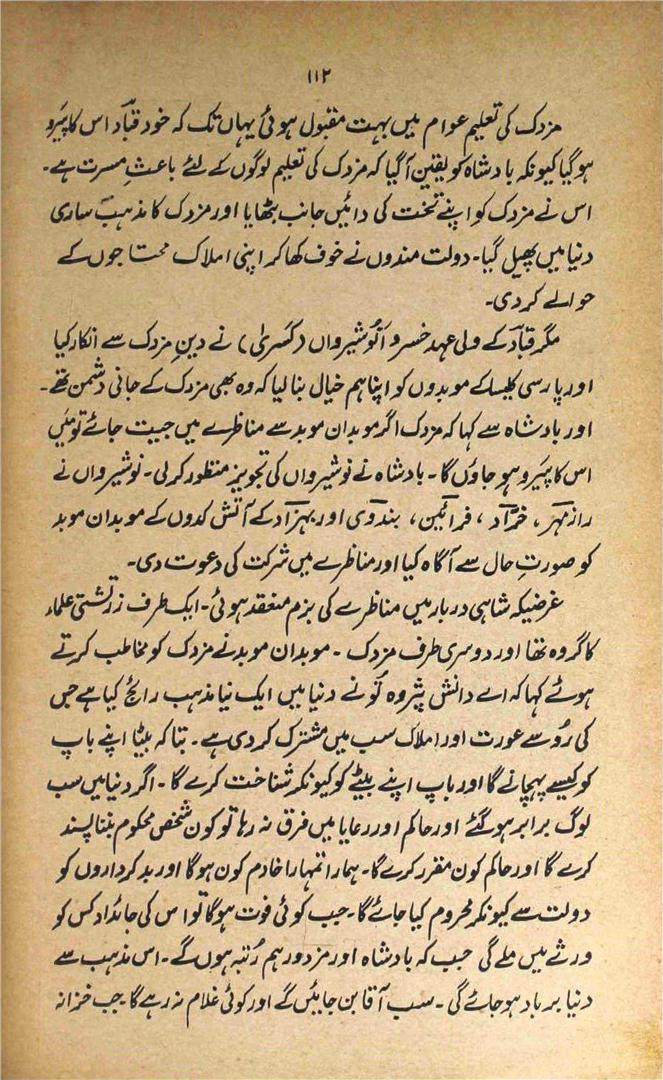 ۱۱۲
مزدک کی تعلیم عوام میں بہت مقبول ہوئی یہاں تک کہ خود قباد اس کا پَیرو
ہو گیا کیونکہ بادشاہ کو یقین آ گیا کہ مزدک کی تعلیم لوگوں کے لئے باعثِ مسرت ہے۔
اس نے مزدک کو اپنے تخت کی دائیں جانب بٹھایا اور مزدک کا مذہب ساری
دنیا میں پھیل گیا۔ دولت مندوں نے خوف کھا کر اپنی املاک محتاجوں کے
حوالے کر دی۔
مگر قباد کے ولی عہد خسرو انوشیرواں (کسریٰ) نے دینِ مزدک سے انکار کیا
اور پارسی کلیسا کے موبدوں کو اپنا ہم خیال بنا لیا کہ وہ بھی مزدک کے جانی دشمن تھے۔
اور بادشاہ سے کہا کہ مزدک اگر موبدان موبد سے مناظرے میں جیت جائے تو میں
اس کا پَیرو ہو جاؤں گا۔ بادشاہ نے نوشیرواں کی تجویز منظور کر لی۔ نوشیرواں نے
رازمہر، خرّاد، فرائین، بندوی اور بہزاد کے آتش کدوں کے موبدان موبد
کو صورتِ حال سے آگاہ کیا اور مناظرے میں شرکت کی دعوت دی۔
غرضیکہ شاہی دربار میں مناظرے کی بزم منعقد ہوئی۔ ایک طرف زرتشتی علماء
کا گروہ تھا اور دوسری طرف مزدک۔ موبدان موبد نے مزدک کو مخاطب کرتے
ہوئے کہا کہ اے دانش پژوہ تُو نے دنیا میں ایک نیا مذہب رائج کیا ہے جس
کی رُو سے عورت اور املاک سب میں مشترک کر دی ہے۔ بتا کہ بیٹا اپنے باپ
کو کیسے پہچانے گا اور باپ اپنے بیٹے کو کیونکر شناخت کرے گا۔ اگر دنیا میں سب
لوگ برابر ہو گئے اور حاکم اور رعایا میں فرق نہ رہا تو کون شخص محکوم بننا پسند
کرے گا اور حاکم کون مقرر کرے گا۔ ہمارا تمہارا خادم کون ہو گا اور بدکرداروں کو
دولت سے کیونکر محروم کیا جائے گا۔ جب کوئی فوت ہو گا تو اس کی جائداد کس کو
ورثے میں ملے گی جب کہ بادشاہ اور مزدور ہم رُتبہ ہوں گے۔ اس مذہب سے
دنیا برباد ہو جائے گی۔ سب آقا بن جائیں گے اور کوئی غلام نہ رہے گا۔ جب خزانہ